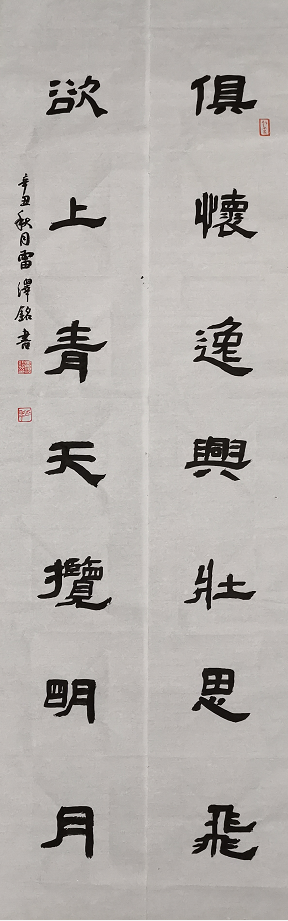 俱懷逸興壯思飛
欲上青天攬明月
辛丑秋月雷澤銘書